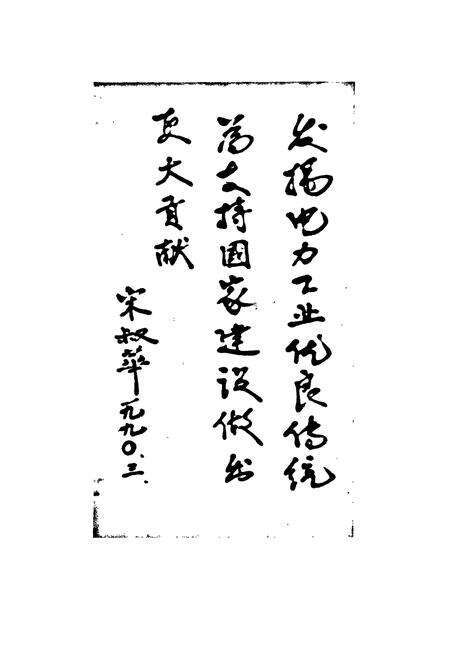 发扬电力工业优良传统
为支持国家建设做出
更大贡献
宋叔华
一九九〇.三.